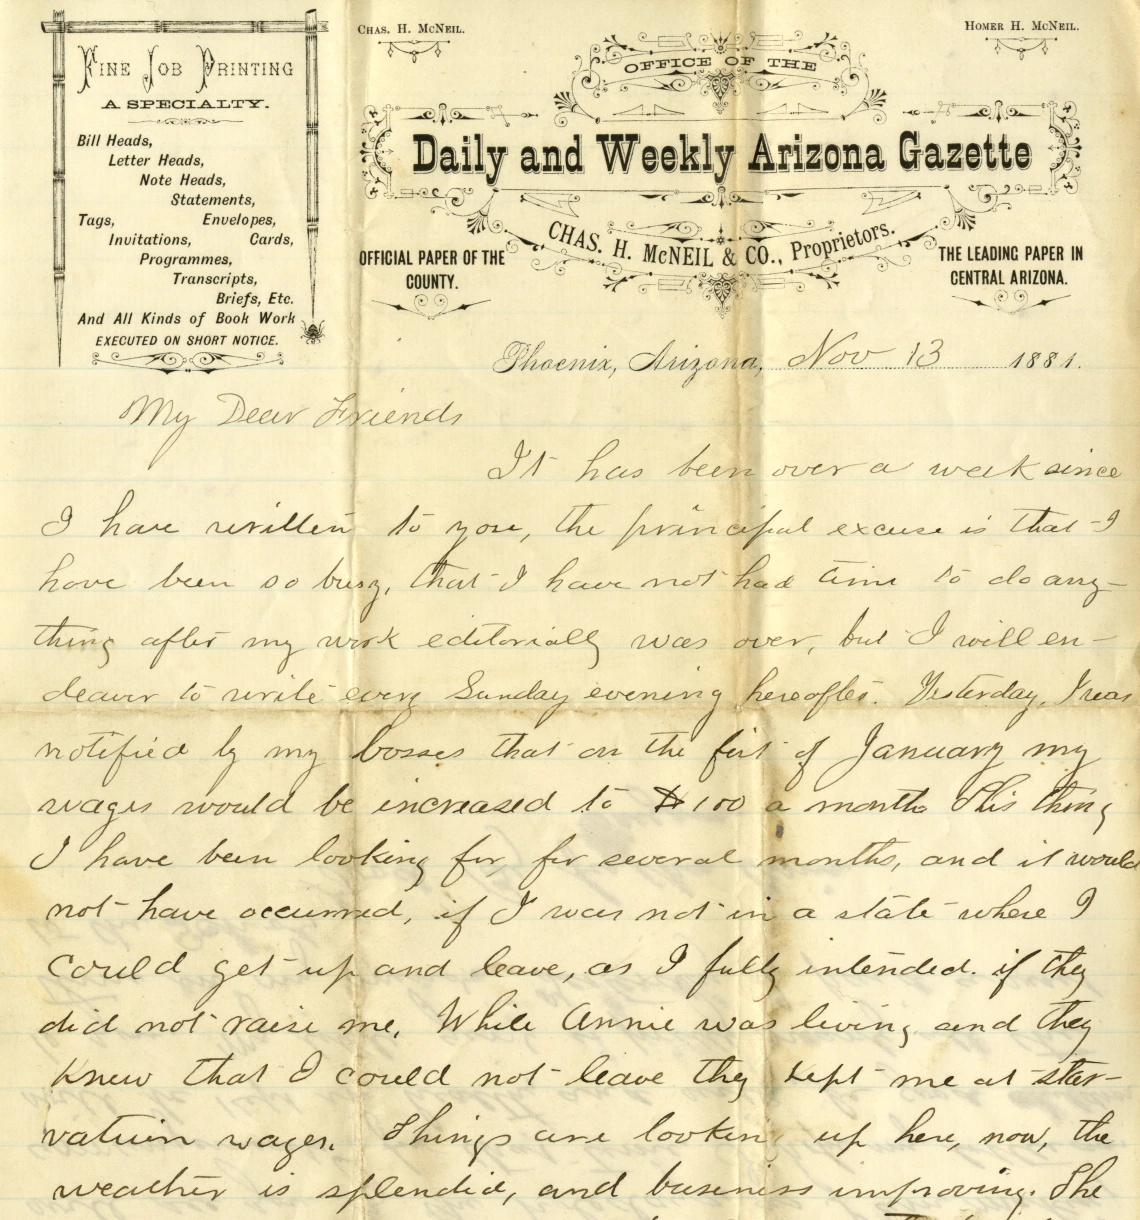 FINE JOB PRINTING
A SPECIALTY.
Bill Heads,
Letter Heads,
Note Heads,
Statements,
Tags, Envelopes,
Invitations, Cards,
Programmes,
Transcripts,
Briefs, Etc.
And All Kinds of Book Work
EXECUTED ON SHORT NOTICE.
CHAS. H. MCNEIL.
HOMER H. MCNEIL.
OFFICE OF THE
Daily and Weekly Arizona Gazette
CHAS. H. McNEIL & CO., Proprietors.
OFFICIAL PAPER OF THE
COUNTY.
THE LEADING PAPER IN
CENTRAL ARIZONA.
Phoenix, Arizona, Nov 13 1881.
My Dear Friends
It has been over a week since
I have written to you, the principal excuse is that I
have been so busy, that I have not had time to do any-
thing after my work editorially was over, but I will en-
deavor to write every Sunday evening hereafter. Yesterday, I was
notified by my bosses that on the first of January my
wages would be increased to $100 a month This thing
I have been looking for, for several months, and it would
not have occurred, if I was not in a state where I
could get up and leave, as I fully intended. if they
did not raise me. While Annie was living and they
knew that I could not leave they kept me at star-
vation wages. Things are looking up here, now, the
weather is splendid, and business improving. The